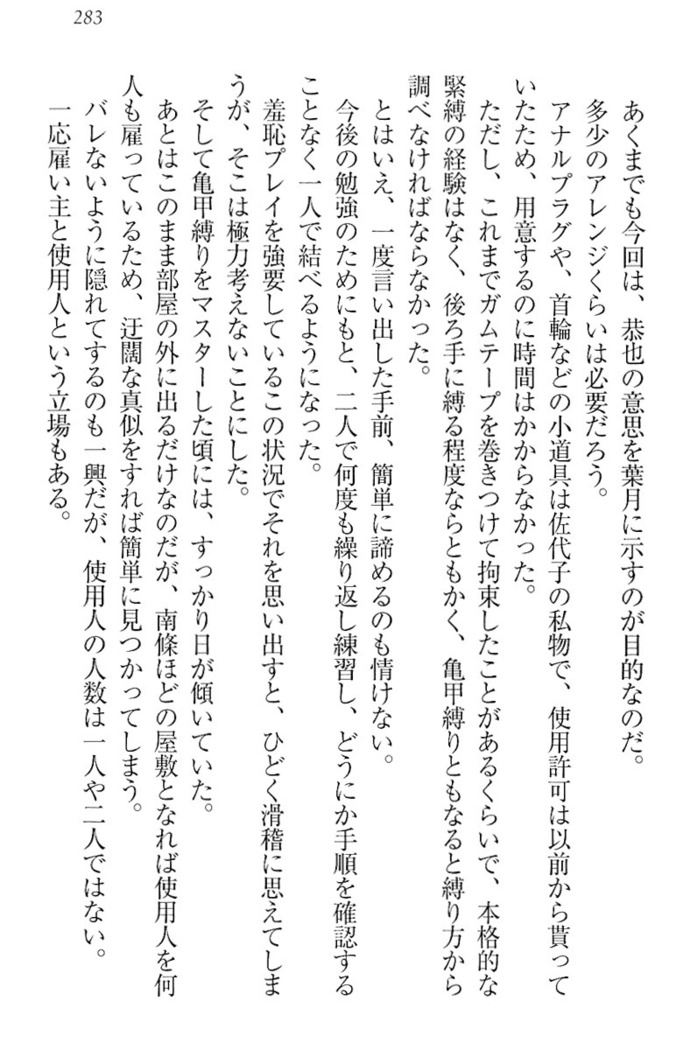 283
あくまでも今回は、恭也の意思を葉月に示すのが目的なのだ。
多少のアレンジくらいは必要だろう。
アナルプラグや、首輪などの小道具は佐代子の私物で、使用許可は以前から貰って
いたため、用意するのに時間はかからなかった。
ただし、これまでガムテープを巻きつけて拘束したことがあるくらいで、本格的な
緊縛の経験はなく、後ろ手に縛る程度ならともかく、亀甲縛りともなると縛り方から
調べなければならなかった。
とはいえ、一度言い出した手前、簡単に諦めるのも情けない。
今後の勉強のためにもと、二人で何度も繰り返し練習し、どうにか手順を確認する
ことなく一人で結べるようになった。
羞恥プレイを強要しているこの状況でそれを思い出すと、ひどく滑稽に思えてしま
うが、そこは極力考えないことにした。
そして亀甲縛りをマスターした頃には、すっかり日が傾いていた。
あとはこのまま部屋の外に出るだけなのだが、南條ほどの屋敷となれば使用人を何
人も雇っているため、迂闊な真似をすれば簡単に見つかってしまう。
バレないように隠れてするのも一興だが、使用人の人数は一人や二人ではない。
一応雇い主と使用人という立場もある。